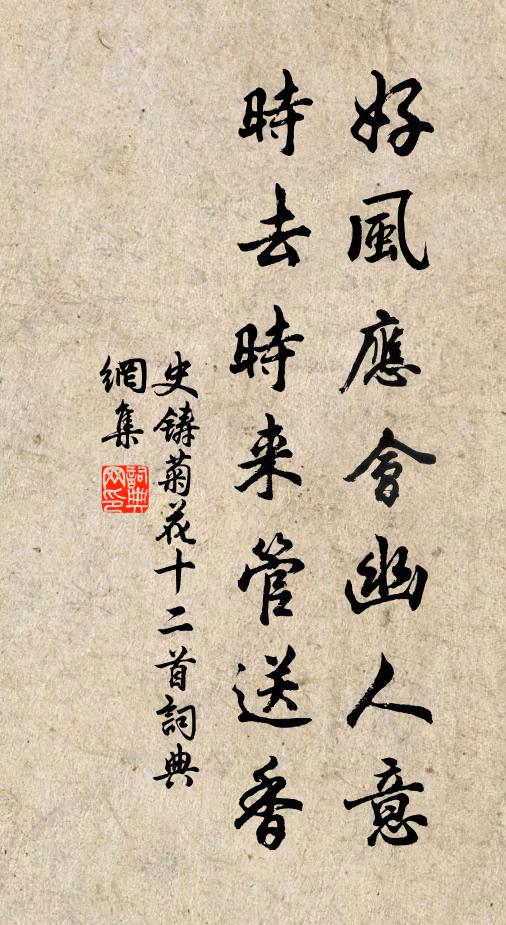 好風應會幽人意
時去時来管送香
史鑄菊花十二首詞典
網集
詞典
網印